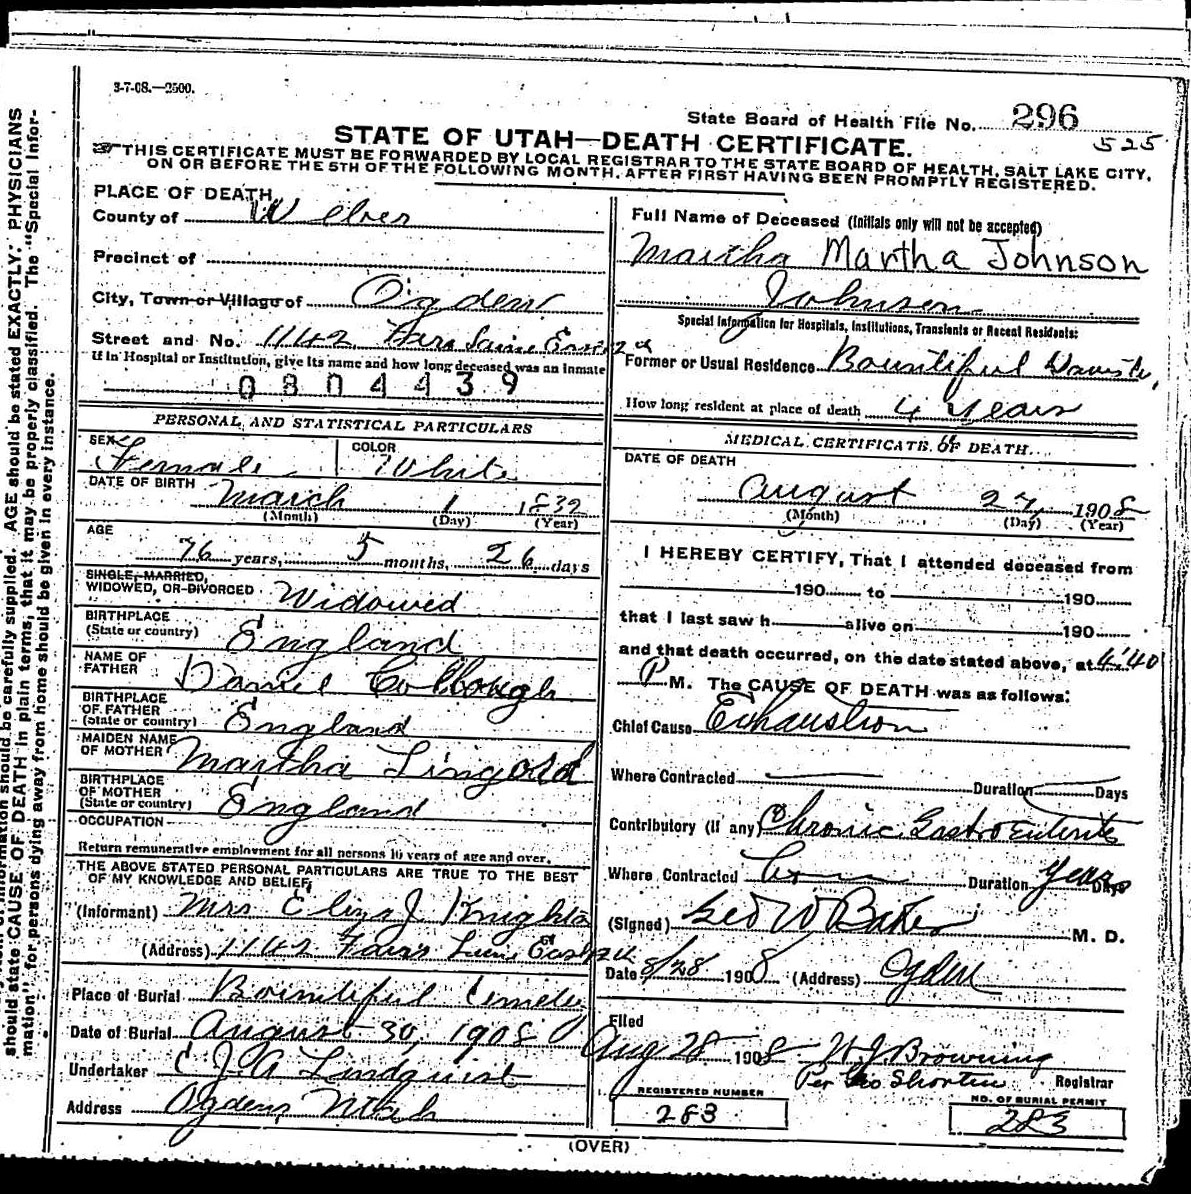 3-7-08.—2500.
State Board of Health File No. 296
525
STATE OF UTAH—DEATH CERTIFICATE.
THIS CERTIFICATE MUST BE FORWARDED BY LOCAL REGISTRAR TO THE STATE BOARD OF HEALTH, SALT LAKE CITY,
ON OR BEFORE THE 5TH OF THE FOLLOWING MONTH, AFTER FIRST HAVING BEEN PROMPTLY REGISTERED.
PLACE OF DEATH
County of Weber
Precinct of
City, Town or Village of Ogden
Street and No. 1142
If in Hospital or Institution, give its name and how long deceased was an inmate
0804439
PERSONAL AND STATISTICAL PARTICULARS
SEX Female
COLOR White
DATE OF BIRTH March 1 1832
(Month) (Day) (Year)
AGE
76 years, 5 months, 26 days
SINGLE, MARRIED,
WIDOWED, OR DIVORCED Widowed
BIRTHPLACE
(State or country) England
NAME OF
FATHER Daniel
BIRTHPLACE
OF FATHER
(State or country) England
MAIDEN NAME
OF MOTHER Martha
BIRTHPLACE
OF MOTHER
(State or country) England
OCCUPATION
Return remunerative employment for all persons 10 years of age and over.
THE ABOVE STATED PERSONAL PARTICULARS ARE TRUE TO THE BEST
OF MY KNOWLEDGE AND BELIEF
(Informant) Mrs. Eliza J Knighton
(Address) 1142
Place of Burial Bountiful Cemetery
Date of Burial August 30, 1908
Undertaker C J A Lindquist
Address Ogden, Utah
Full Name of Deceased (Initials only will not be accepted)
Martha Martha Johnson
Johnson
Special Information for Hospitals, Institutions, Transients or Recent Residents:
Former or Usual Residence Bountiful Davis
How long resident at place of death 4 years
MEDICAL CERTIFICATE OF DEATH
DATE OF DEATH
August 27, 1908
(Month) (Day) (Year)
I HEREBY CERTIFY, That I attended deceased from
190 to 190
that I last saw h alive on 190
and that death occurred, on the date stated above, at 4:40
P M. The CAUSE OF DEATH was as follows:
Chief Cause Exhaustion
Where Contracted Duration Days
Contributory (if any) Chronic Gastro Enteritis
Where Contracted Duration Years Days
(Signed) Geo W Baker M. D.
Date 8/28 1908 (Address) Ogden
Filed
Aug 28 1908 W J Browning
Per Geo Shorten Registrar
REGISTERED NUMBER
283
NO. OF BURIAL PERMIT
283
(OVER)
information should be carefully supplied. AGE should be stated EXACTLY. PHYSICIANS
should state CAUSE OF DEATH in plain terms, that it may be properly classified. The "Special Infor-
mation" for persons dying away from home should be given in every instance.